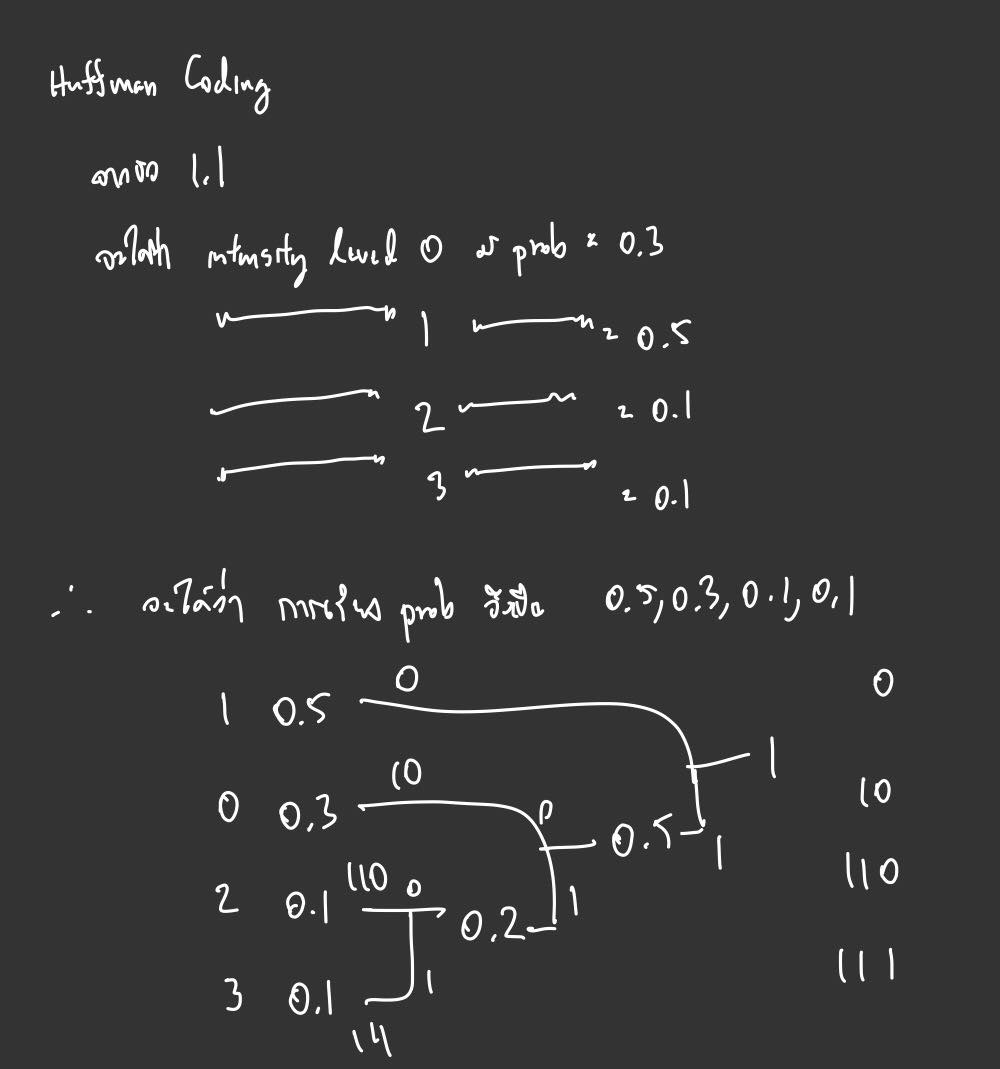 Huffman Coding
จากข้อ 1.1
จะได้ว่า intensity level 0 มี prob = 0.3
1 = 0.5
2 = 0.1
3 = 0.1
∴ จะได้ว่า การเรียง prob คือ 0.5, 0.3, 0.1, 0.1
0 0
1 0.5
1
10 10
0 0.3 0
0.5 1
110 0 110
2 0.1 0.2 1
111
3 0.1 1
111